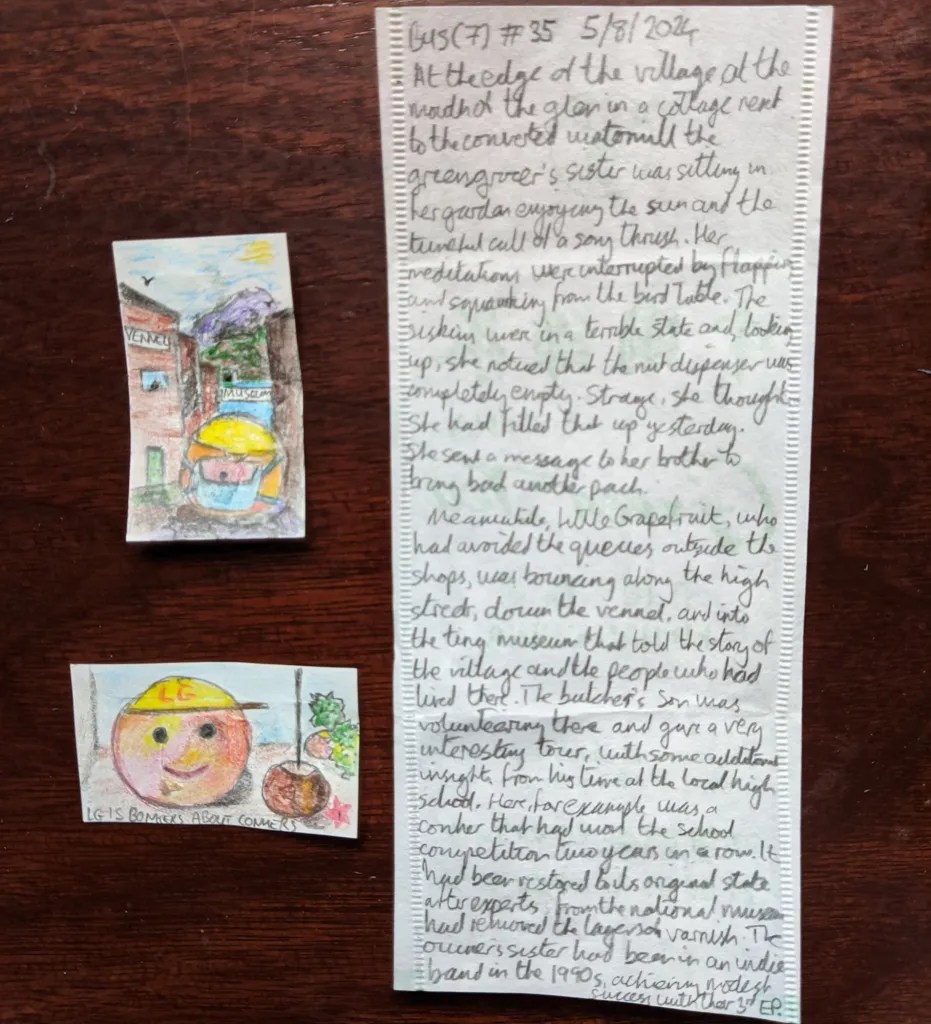 Bus(7) #35 5/8/2024
At the edge of the village at the
mouth of the glen in a cottage next
to the converted watermill the
greengrocer's sister was sitting in
her garden enjoying the sun and the
tuneful call of a song thrush. Her
meditations were interrupted by flapping
and squawking from the bird table. The
siskins were in a terrible state and, looking
up, she noticed that the nut dispenser was
completely empty. Strage, she thought.
She had filled that up yesterday.
She sent a message to her brother to
bring bad another pack.
Meanwhile, Little Grapefruit, who
had avoided the queues outside the
shops, was bouncing along the high
street, down the vennel, and into
the tiny museum that told the story of
the village and the people who had
lived there. The butcher's son was
volunteering there and gave a very
interesting tour, with some additional
insight from his time at the local high
school. Here, for example was a
conker that had won the school
competition two years in a row. It
had been restored to its original state
after experts from the national museum
had removed the layers of varnish. The
owner's sister had been in an indie
band in the 1990s, achieving modest
success with their 3rd EP.
VENNEL
MUSEUM
LG
LG IS BONKERS ABOUT CONKERS